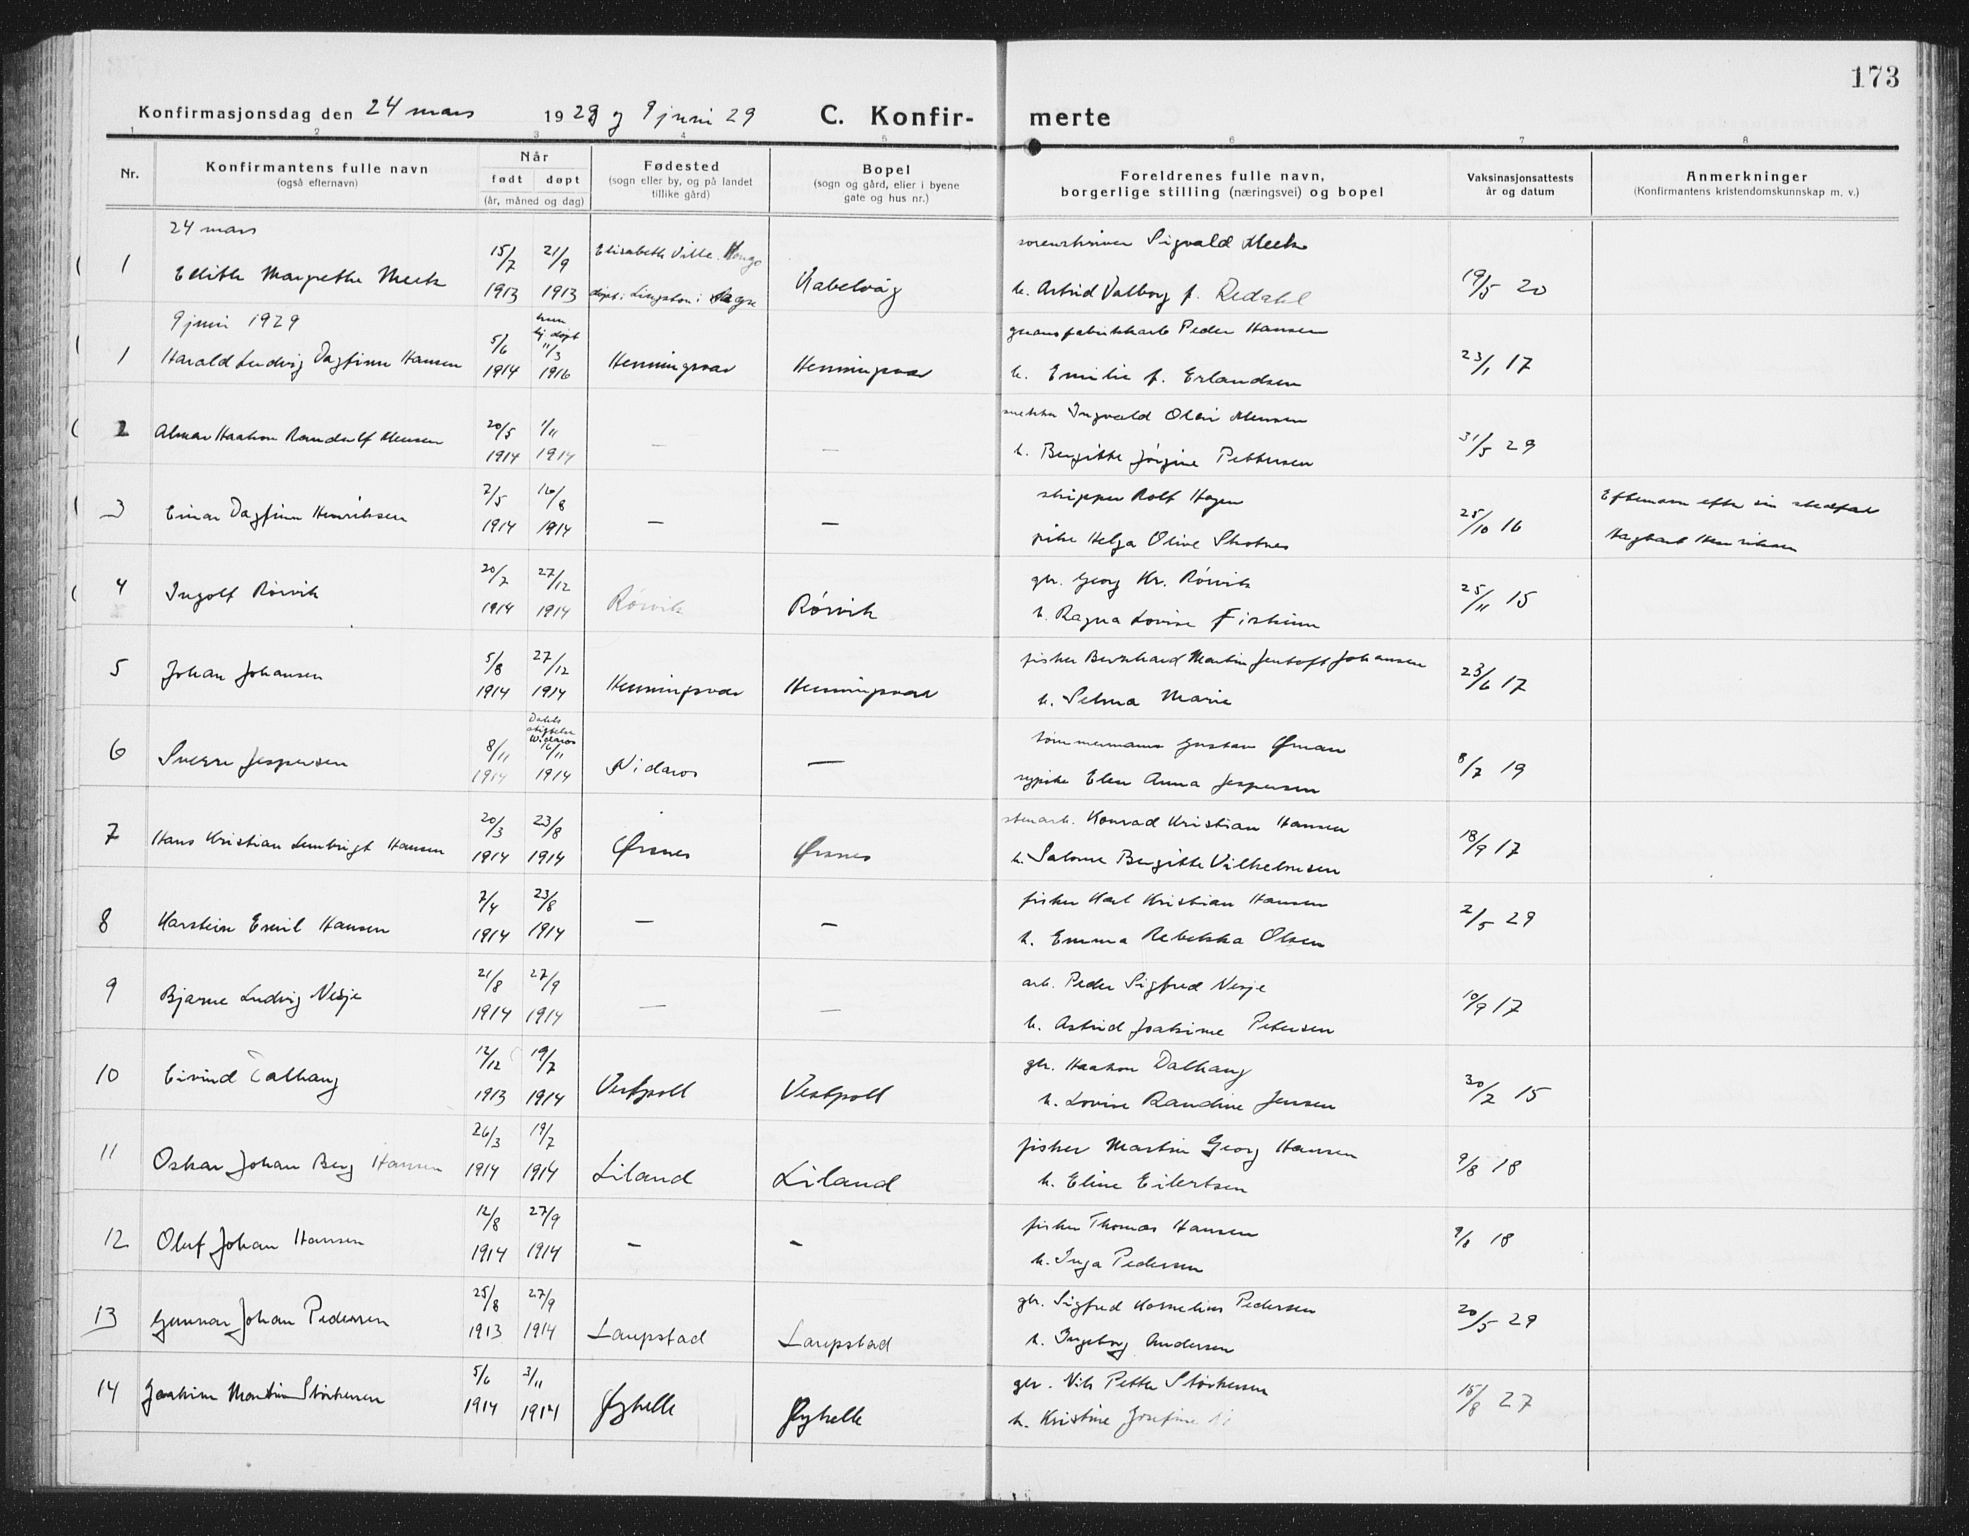 173
Konfirmasjonsdag den 24 mars 1929 og 9 juni 29 C. Konfirmerte
1 2 3 4 5 6 7 8
Nr.
Konfirmantens fulle navn
(også efternavn)
Når
født døpt
(år, måned og dag)
Fødested
(sogn eller by, og på landet
tillike gård)
Bopel
(sogn og gård, eller i byene
gate og hus nr.)
Foreldrenes fulle navn,
borgerlige stilling (næringsvei) og bopel
Vaksinasjonsattests
år og datum
Anmerkninger
(Konfirmantens kristendomskunnskap m. v.)
24 mars
1 Edith Margrethe Meek 15/7 1913 21/9 1913 Elisabeth Ville Kongo Kabelvåg
sorenskriver Sigvald Meek
h. Astrid Valborg f. Redahl 19/5 20
9 juni 1929
1 Harald Ludvig Dagfinn Hansen 5/6 1914 hjdøpt 11/3 1916 Henningsvær Henningsvær
guanofabrikkarb Peder Hansen
h. Emilie f. Erlandsen 23/1 17
2 Almar Haakon Randulf Mensen 20/5 1914 1/11 1914 — —
Ingvald Olai Mensen
h. Bergitte Jørgine Pettersen 31/5 29
3 Einar Dagfinn Henriksen 2/5 1914 16/8 1914 — —
skipper Rolf Hagen
pike Helga Olive Skotnes 25/10 16
Efternavn efter sin stedfar
Hagbart Henriksen
4 Ingolf Rørvik 20/7 1914 27/12 1914 Rørvik Rørvik
gbr. Georg Kr. Rørvik
h. Ragna Lovise Fiskum 25/11 15
5 Johan Johansen 5/8 1914 27/12 1914 Henningsvær Henningsvær
fisker Bernhard Martin Jentoft Johansen
h. Selma Marie 23/6 17
6 Sverre Jespersen 8/11 1914 stiftelse 16/11 1914 Nidaros —
tømmermann Gustav Øman
sypike Elen Anna Jespersen 8/7 19
7 Hans Kristian Lembrigt Hansen 20/3 1914 23/8 1914 Ørsnes Ørsnes
stenarb. Konrad Kristian Hansen
h. Salome Bergitte Vilhelmsen 18/9 17
8 Karstein Emil Hansen 7/4 1914 23/8 1914 — —
fisker Karl Kristian Hansen
h. Emma Rebekka Olsen 2/5 29
9 Bjarne Ludvig Vesje 21/8 1914 27/9 1914 — —
arb. Peder Sigfred Vesje
h. Astrid Joakime Petersen 10/9 17
10 Eivind Dalhaug 12/12 1913 19/7 1914 Vestpoll Vestpoll
gbr. Haakon Dalhaug
h. Lovise Randine Jensen 30/7 15
11 Oskar Johan Berg Hansen 26/3 1914 19/7 1914 Liland Liland
fisker Martin Georg Hansen
h. Eline Eilertsen 9/8 18
12 Oluf Johan Hansen 12/8 1914 27/9 1914 — —
fisker Thomas Hansen
h. Inga Pedersen 9/8 18
13 Gunnar Johan Pedersen 25/8 1913 27/9 1914 Laupstad Laupstad
gbr. Sigfred Kornelius Pedersen
h. Ingeborg Andersen 20/5 29
14 Joakim Martin Størkersen 5/6 1914 3/11 1914 Øyhelle Øyhelle
gbr. Nils Petter Størkersen
h. Kristine Josefine 15/8 27